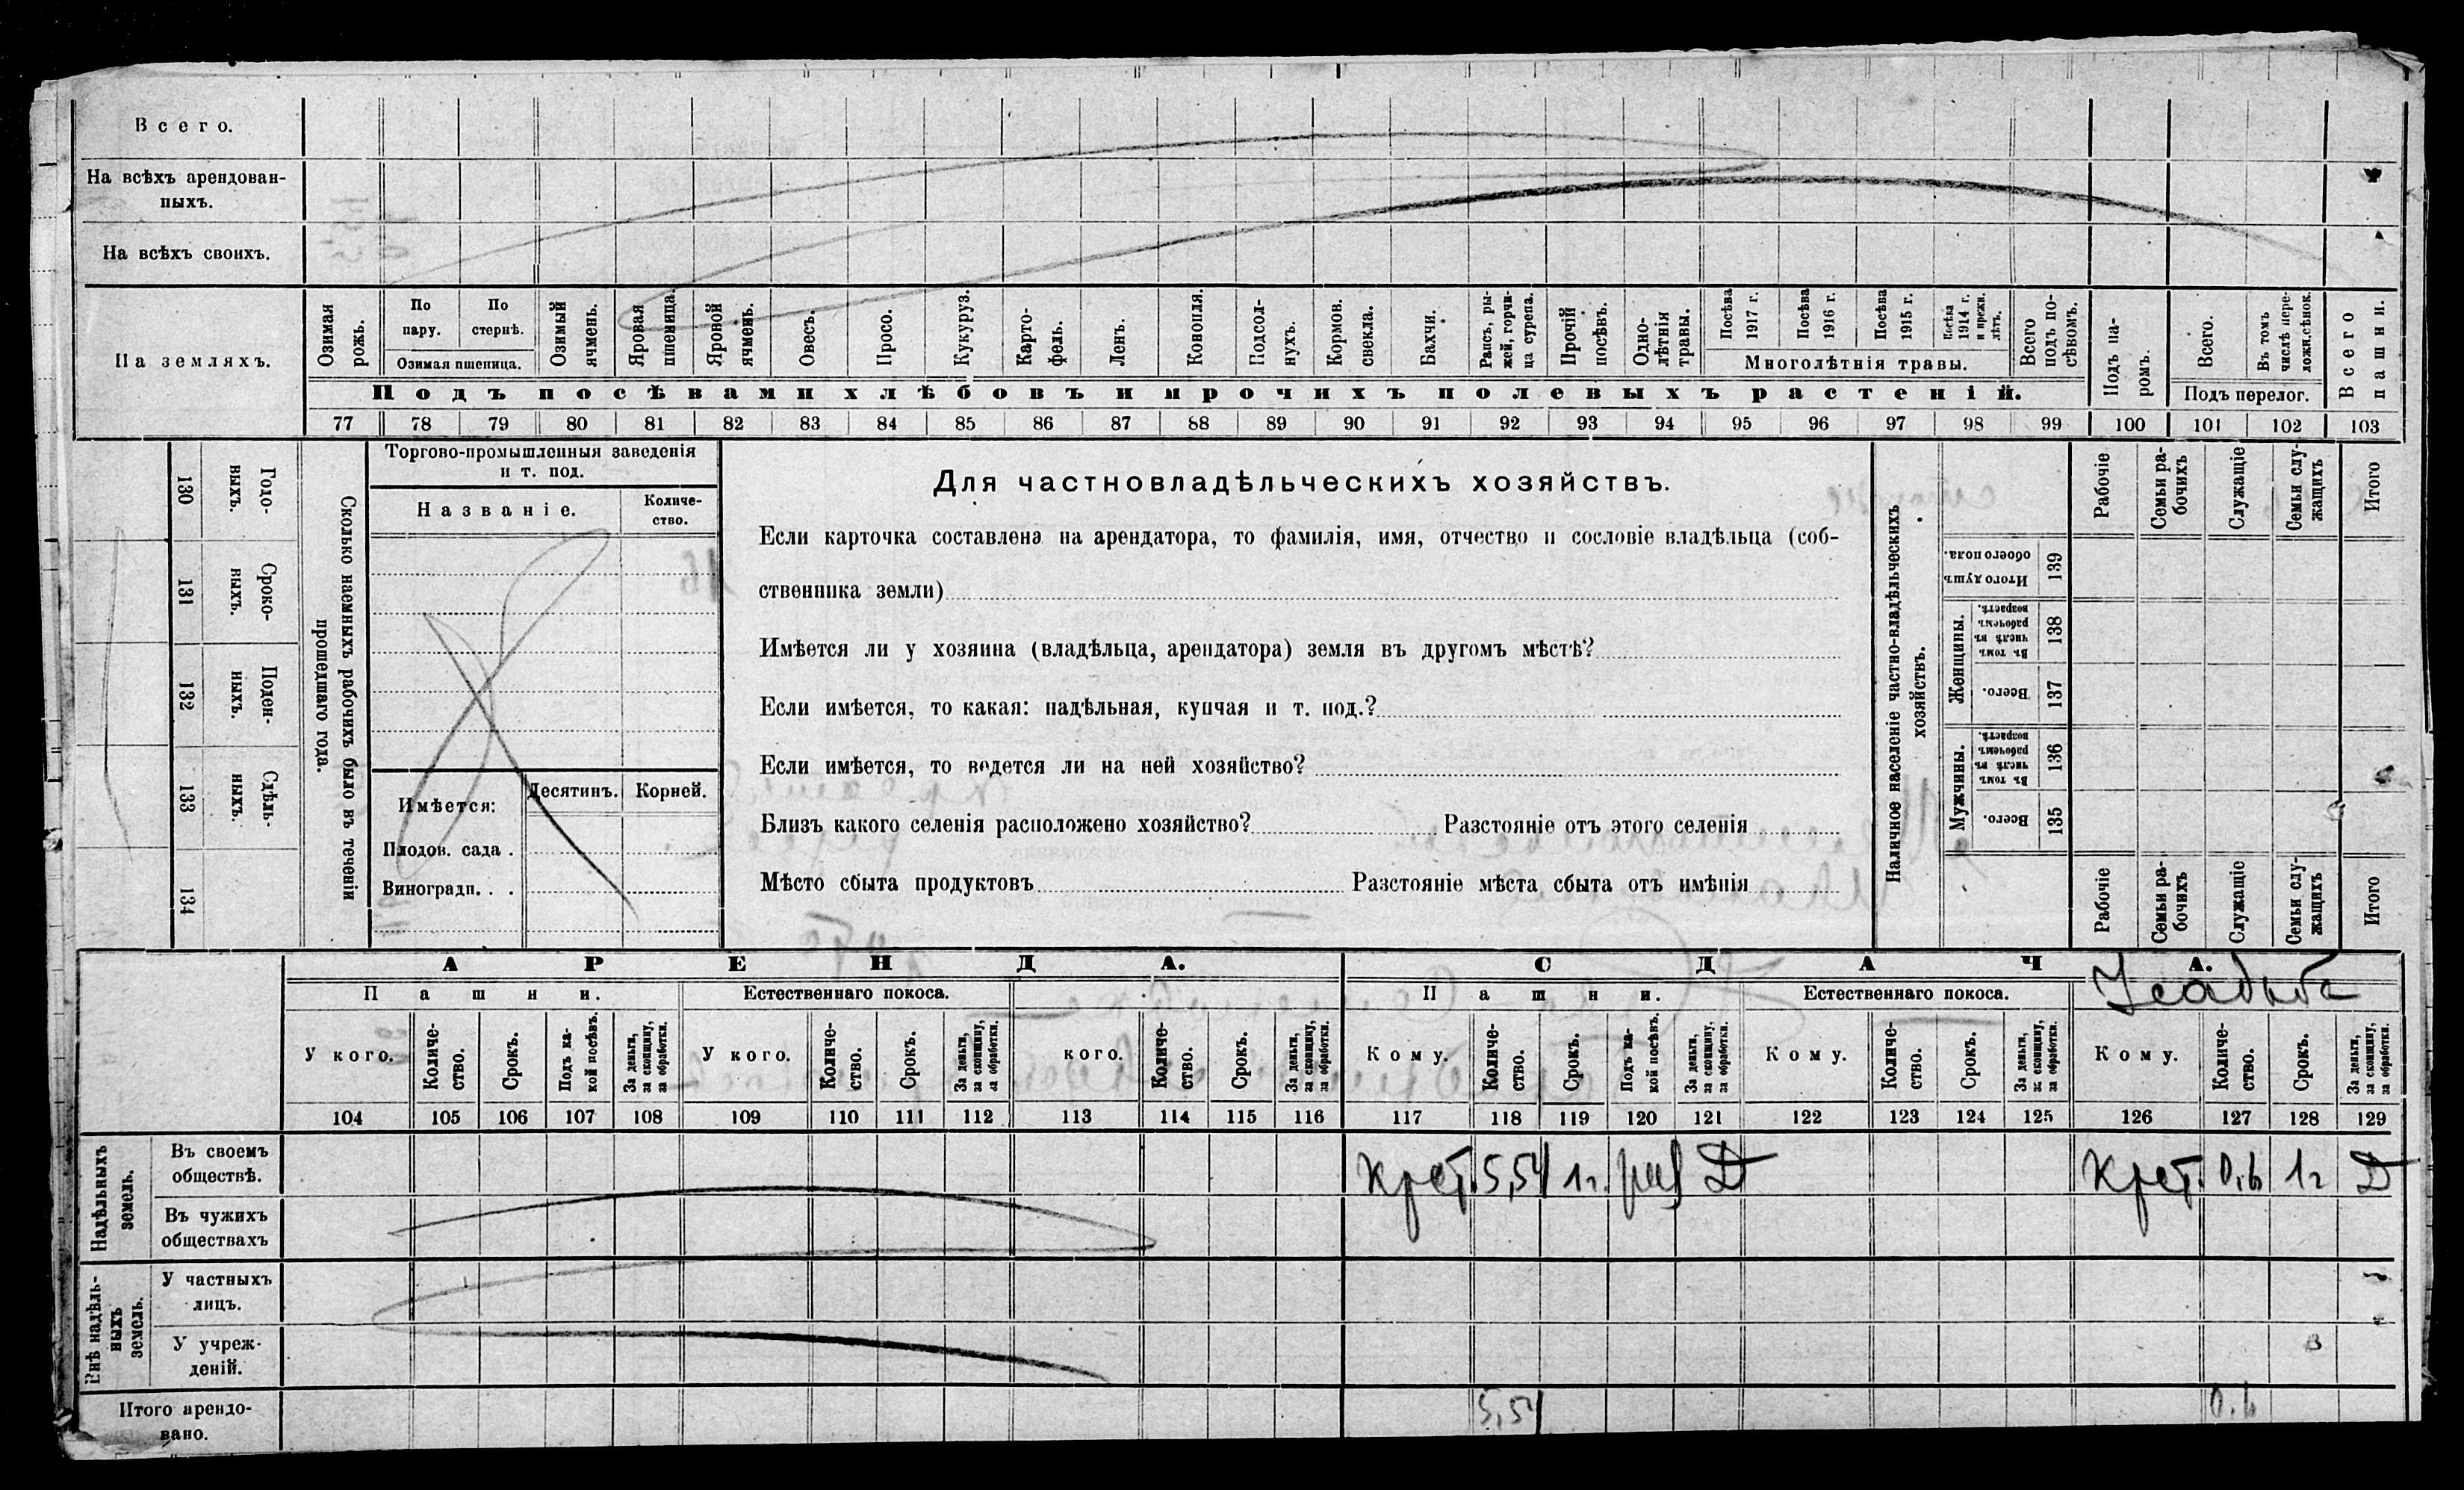 Всего.
На всѣхъ арендован-
ныхъ.
На всѣхъ своихъ.
На земляхъ.
Озимая рожь.
По пару.
По стернѣ.
Озимая пшеница.
Озимый ячмень.
Яровая пшеница.
Яровой ячмень.
Овесъ.
Просо.
Кукуруз.
Карто-
фель.
Ленъ.
Конопля.
Подсол-
нухъ.
Кормов. свекла.
Бахчи.
Рапсъ, ры-
жей, горчи-
ца сурепа.
Прочій посѣвъ.
Одно-
лѣтнія травы.
Посѣва 1917 г.
Посѣва 1916 г.
Посѣва 1915 г.
Посѣва 1914 г. и прежн. лѣтъ.
Многолѣтнія травы.
Всего подъ по-
сѣвомъ.
Подъ па-
ромъ.
Всего.
Въ томъ числѣ пере-
ложн. сѣнок.
Подъ перелог.
Всего пашни.
Подъ посѣвами хлѣбовъ и прочихъ полевыхъ растеній.
77 78 79 80 81 82 83 84 85 86 87 88 89 90 91 92 93 94 95 96 97 98 99 100 101 102 103
130 Годо-
выхъ.
131 Сроко-
ныхъ.
132 Поден-
ныхъ.
133 Сдѣль-
ныхъ.
134
Сколько наемныхъ рабочихъ было въ теченіи
прошедшаго года.
Торгово-промышленныя заведенія
и т. под.
Названіе.
Количе-
ство.
Имѣется:
Десятинъ.
Корней.
Плодов. сада .
Виноградн. . .
Для частновладѣльческихъ хозяйствъ.
Если карточка составлена на арендатора, то фамилія, имя, отчество и сословіе владѣльца (соб-
ственника земли)
Имѣется ли у хозяина (владѣльца, арендатора) земля въ другомъ мѣстѣ?
Если имѣется, то какая: надѣльная, купчая и т. под.?
Если имѣется, то ведется ли на ней хозяйство?
Близъ какого селенія расположено хозяйство? Разстояніе отъ этого селенія
Мѣсто сбыта продуктовъ Разстояніе мѣста сбыта отъ имѣнія
Наличное населеніе частно-владѣльческихъ
хозяйствъ.
Рабочіе
Семьи ра-
бочихъ
Служащіе
Семьи слу-
жащихъ
Итого
Итого душъ обоего пола. 139
Женщины.
Въ томъ числѣ въ рабочемъ возрастѣ. 138
Всего. 137
Мужчины.
Въ томъ числѣ въ рабочемъ возрастѣ. 136
Всего. 135
Рабочіе
Семьи ра-
бочихъ
Служащіе
Семьи слу-
жащихъ
Итого
АРЕНДА.
СДАЧА.
Пашни.
Естественнаго покоса.
Пашни.
Естественнаго покоса.
Усадьба
У кого.
Количе-
ство.
Срокъ.
Подъ ка-
кой посѣвъ.
За деньги, за скопщину, за обработки.
У кого.
Количе-
ство.
Срокъ.
За деньги, за скопщину, за обработки.
кого.
Количе-
ство.
Срокъ.
За деньги, за скопщину, за обработки.
Кому.
Количе-
ство.
Срокъ.
Подъ ка-
кой посѣвъ.
За деньги, за скопщину, за обработки.
Кому.
Количе-
ство.
Срокъ.
За деньги, за скопщину, за обработки.
Кому.
Количе-
ство.
Срокъ.
За деньги, за скопщину, за обработки.
104 105 106 107 108 109 110 111 112 113 114 115 116 117 118 119 120 121 122 123 124 125 126 127 128 129
Надѣльныхъ
земель.
Въ своемъ
обществѣ.
Крст. 5,54 1г. Д Крст. 0.6 1г Д
Въ чужихъ
обществахъ
Внѣ надѣль-
ныхъ
земель.
У частныхъ
лицъ.
У учреж-
деній.
Итого арендо-
вано.
5,54 0.6